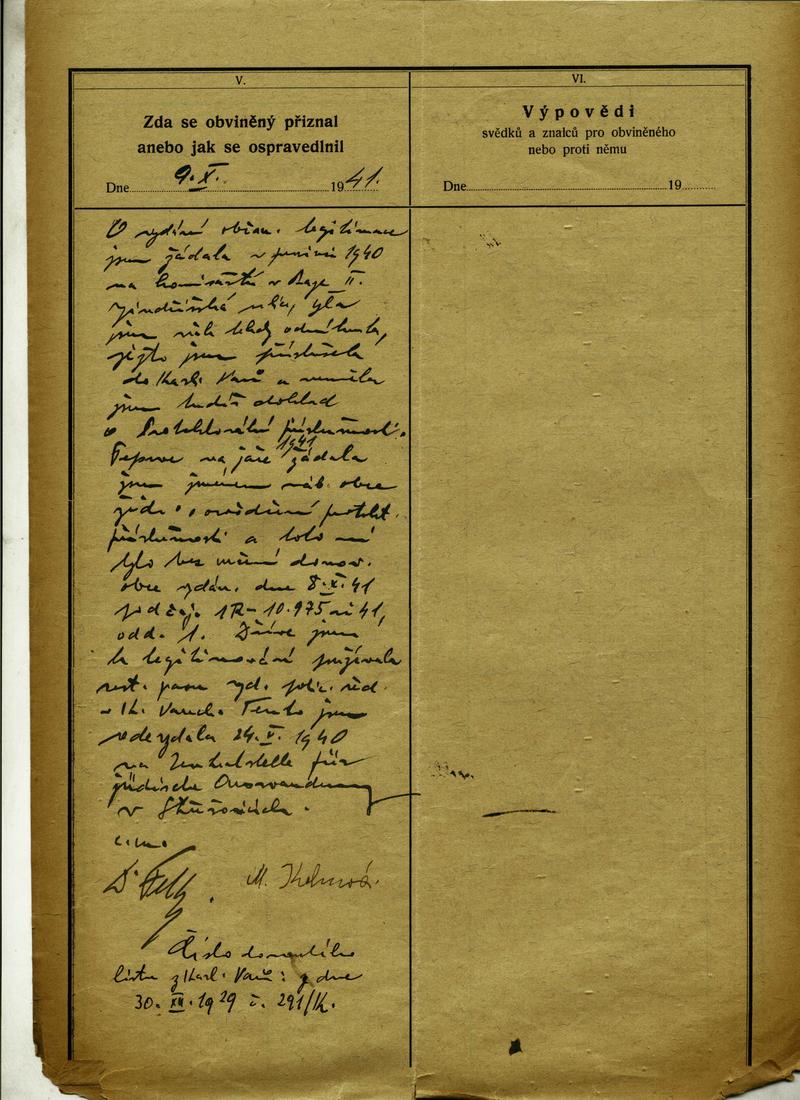 V.
Zda se obviněný přiznal
anebo jak se ospravedlnil
Dne 9. X. 1941.
VI.
Výpovědi
svědků a znalců pro obviněného
nebo proti němu
Dne 19
O vydání občan. legitimace
jsem žádala v 1940
na komisařství v Praze II.
Jindřišská ulice, byla
jsem však tehdy odmítnuta,
ježto jsem příslušela
do Karl. Varů a neměla
jsem tudíž doklad
o Protektorátní příslušnosti.
Teprve na jaře 1941 žádala
jsem jménem náb. obce
žido o osvědčení protekt.
příslušnosti a toto mi
bylo bez domov.
obce vydán. dne 8. X. 41
pod čj. 1R-10.975 ai 41,
odd. 1. Dříve jsem
k legitimování používala
cest. pasu vyd. polic. řed.
v K. Varech. Tento jsem
odevzdala 24. V. 1940
na Zentralstelle für
jüdische Auswanderung
v Střešovicích.
Dr
M.
Číslo domovského
listu z Karl. Varů: z dne
30. XII. 1929 č. 291/K.